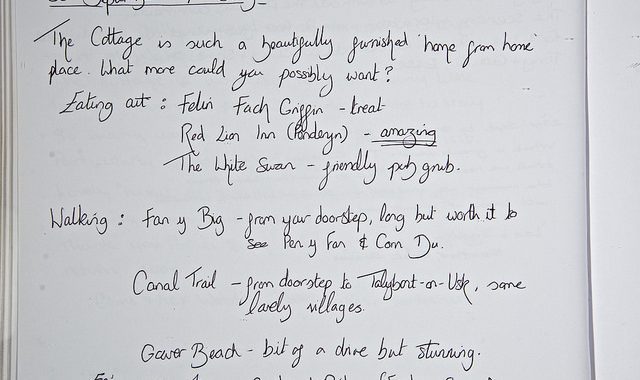 The Cottage is such a beautifully furnished 'home from home'
place. What more could you possibly want?
Eating out : Felin Fach Griffin - treat
Red Lion Inn (Penderyn) - amazing
The White Swan - friendly pub grub.
Walking : Fan y Big - from your doorstep, long but worth it to
see Pen y Fan & Corn Du.
Canal Trail - from doorstep to Talybont-on-Usk, some
lovely villages.
Gower Beach - bit of a drive but stunning.